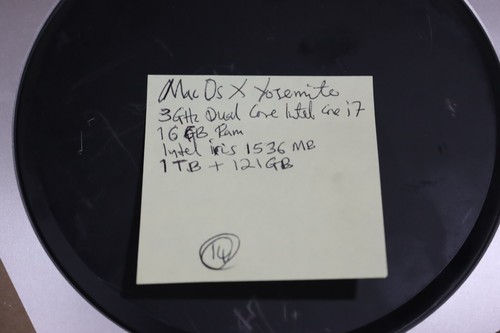 Mac Os X Yosemite
3GHz Dual Core Intel Core i7
16 GB Ram
Intel iris 1536 MB
1TB + 121GB
14